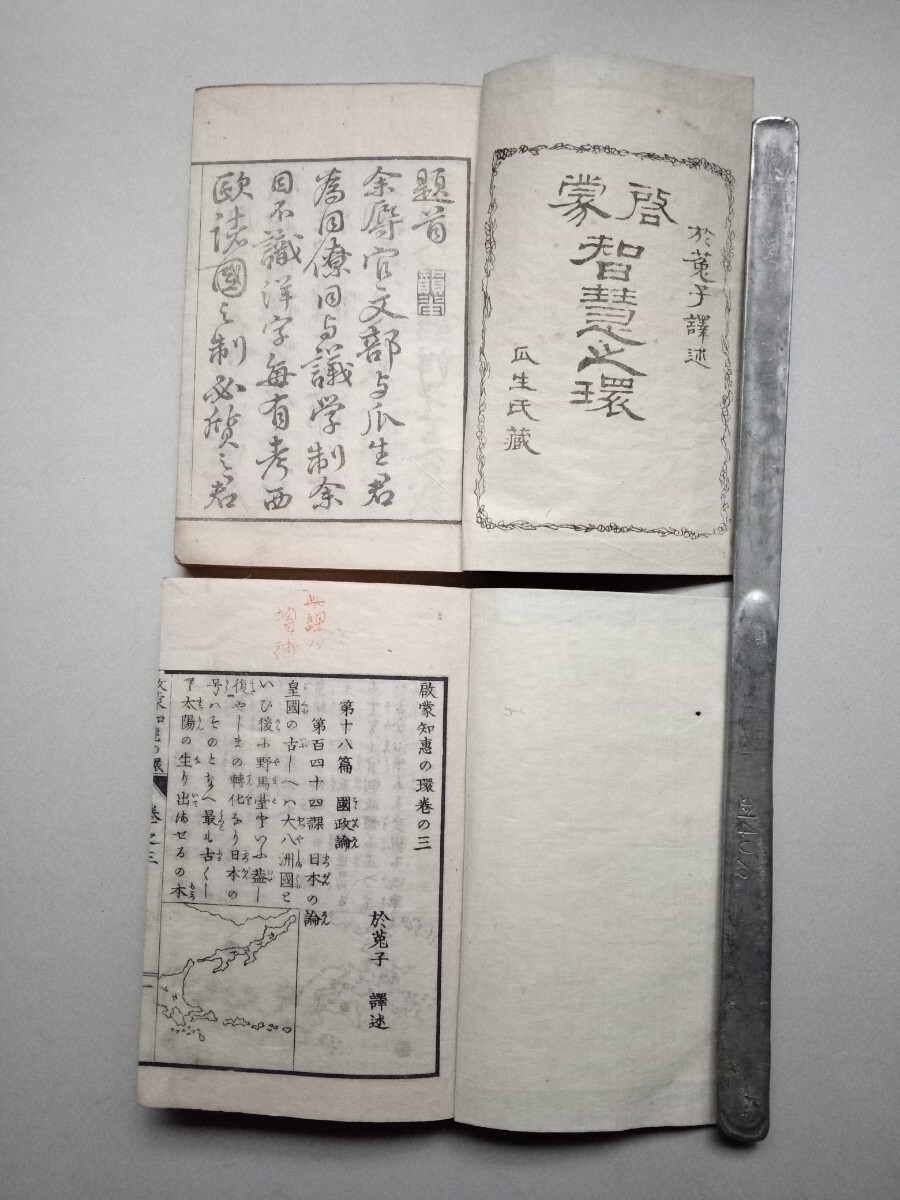 於菟子譯述
啓蒙
智慧之環
瓜生氏藏
題首
余辱官文部与瓜生君
為同僚同与議学制余
目不識洋字每有考西
歐諸國之制必質之君
此課ハ
増補
啟蒙知惠の環卷の三
於菟子 譯述
第十八篇 國政論
第百四十四課 日本の論
皇國の古しへハ大八洲國と
いひ後に野馬臺といふ蓋し
後やしまの轉化なり日本の
号ハそのとなへ最も古くし
て太陽の生り出ませるの本
卷之三